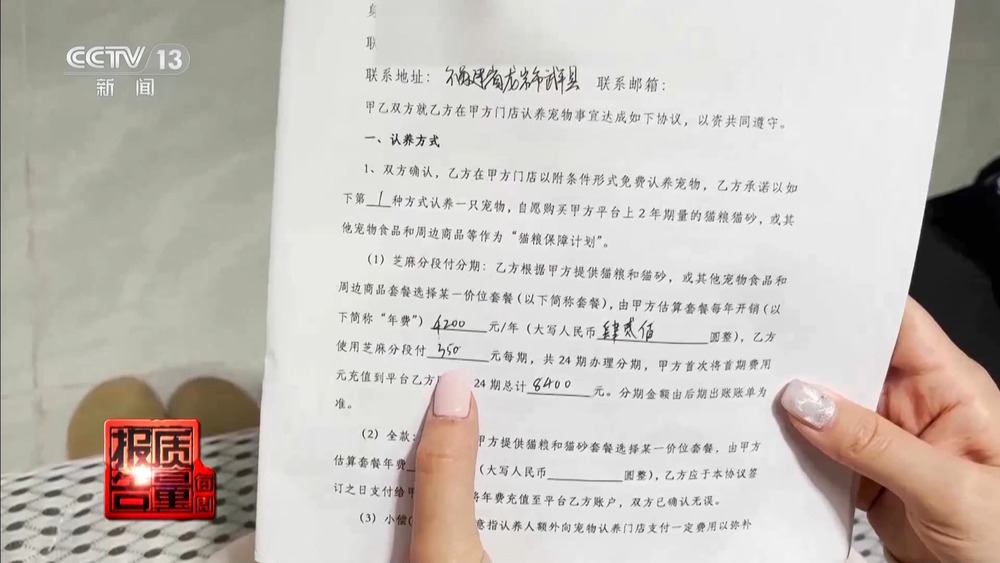 CCTV 13
新闻
身
联
联系地址：福建省龙岩市武平县 联系邮箱：
甲乙双方就乙方在甲方门店认养宠物事宜达成如下协议，以资共同遵守。
一、认养方式
1、双方确认，乙方在甲方门店以附条件形式免费认养宠物，乙方承诺以如
下第1种方式认养一只宠物，自愿购买甲方平台上2年期量的猫粮猫砂，或其
他宠物食品和周边商品等作为“猫粮保障计划”。
（1）芝麻分段付分期：乙方根据甲方提供猫粮和猫砂，或其他宠物食品和
周边商品套餐选择某一价位套餐（以下简称套餐），由甲方估算套餐每年开销（以
下简称“年费”）4200元/年（大写人民币肆贰佰圆整），乙方
使用芝麻分段付350元每期，共24期办理分期，甲方首次将首期费用
元充值到平台乙方 24期总计8400元。分期金额由后期出账账单为
准。
（2）全款： 甲方提供猫粮和猫砂套餐选择某一价位套餐，由甲方
估算套餐年费 （大写人民币 圆整），乙方应于本协议签
订之日支付给甲 将年费充值至平台乙方账户，双方已确认无误。
（3）小偿 意指认养人额外向宠物认养门店支付一定费用以弥补
质量报告